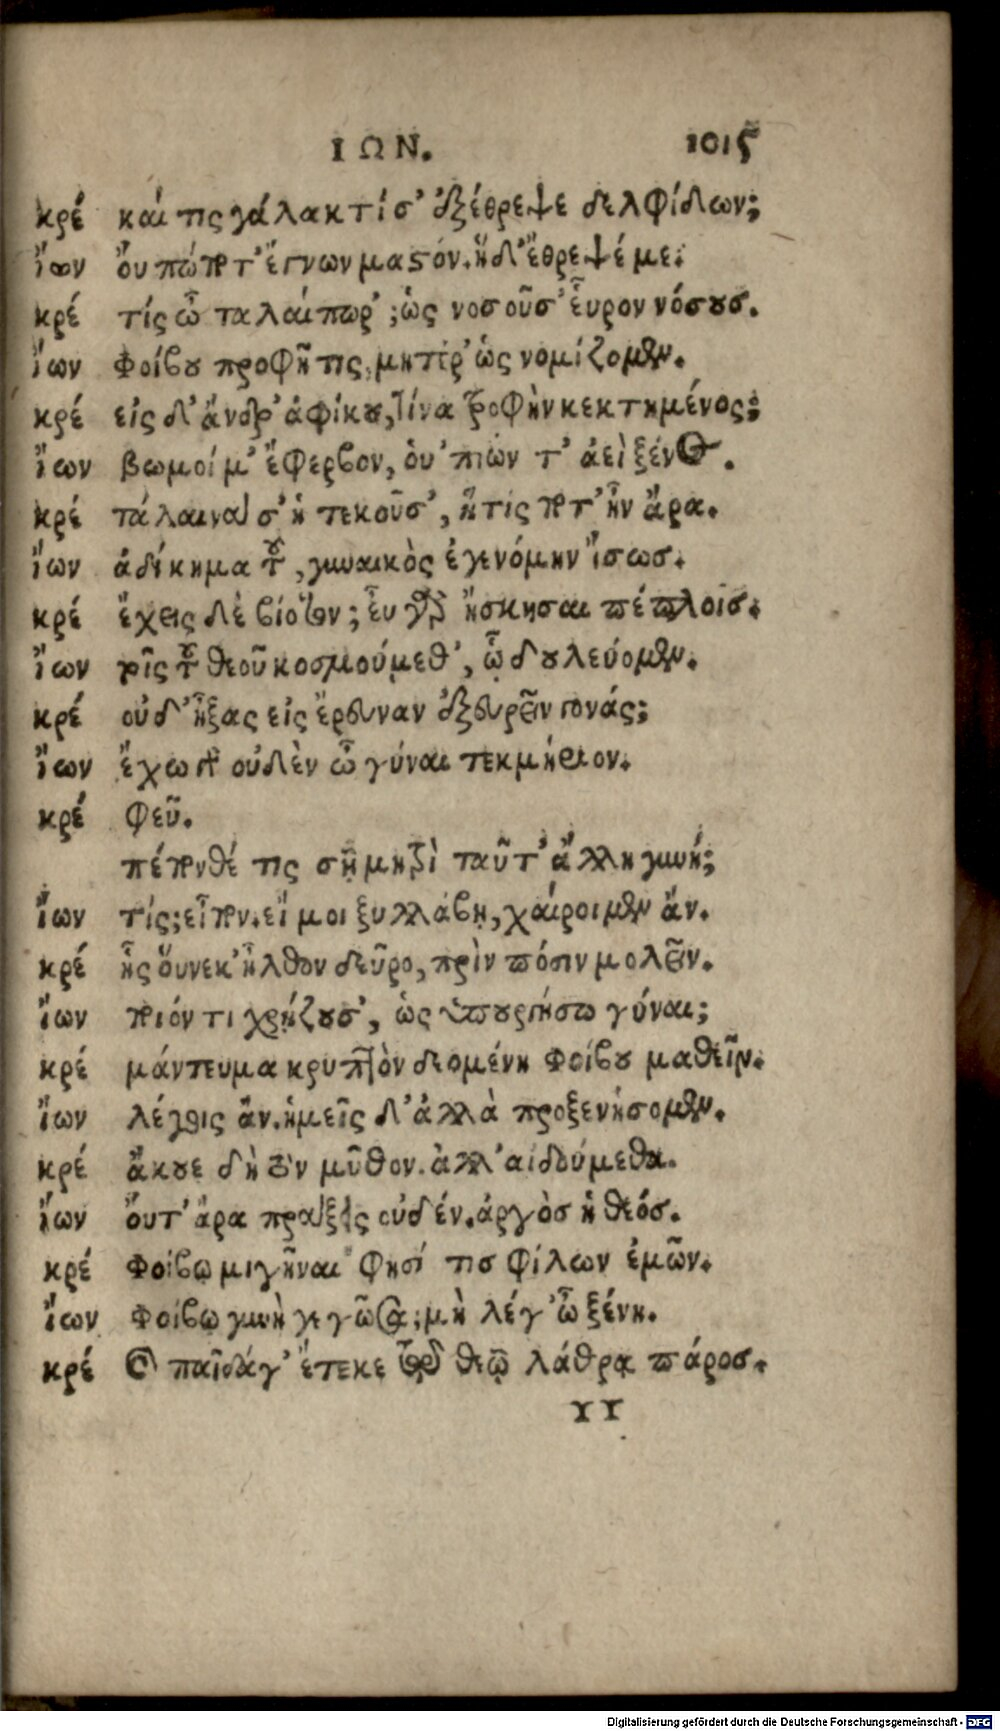 ΙΩΝ. 1015
κρέ καὶ τίς γάλακτί σ' ἐξέθρεψε δελφίδων;
ἴων ὄυ πώποτ' ἔγνων μαστόν. ἣ δ' ἔθρεψέ με.
κρέ τίς ὦ ταλαίπωρ'; ὡς νοσοῦσ' ἧυρον νόσους.
ἴων Φοίβου προφῆτις, μητέρ' ὡς νομίζομεν.
κρέ εἰς δ' ἄνδρ' ἀφίκου, τίνα τροφὴν κεκτημένος;
ἴων βωμοί μ' ἔφερβον, ὁυ' πιών τ' ἀεὶ ξένος.
κρέ τάλαινα σ' ἡ τεκοῦσ', ἥτις ποτ' ἦν ἄρα.
ἴων ἀδίκημα του, γυναικὸς ἐγενόμην ἴσως.
κρέ ἔχεις δὲ βίοτον; εὖ γὰρ ἤσκησαι πέπλοισ.
ἴων τοῖς τοῦ θεοῦ κοσμούμεθ', ᾧ δουλεύομεν.
κρέ οὐδ' ᾖξας εἰς ἔρευναν ἐξευρεῖν γονάς;
ἴων ἔχω γὰρ οὐδὲν ὦ γύναι τεκμήριον.
κρέ Φεῦ.
πέπονθέ τις σῇ μητρὶ ταῦτ' ἄλλη γυνή;
ἴων τίς; εἶπον. εἴ μοι ξυλλάβῃ, χαίροιμεν ἄν.
κρέ ἧς ὅυνεκ' ἦλθον δεῦρο, πρὶν πόσιν μολεῖν.
ἴων ποιόν τι χρῄζουσ', ὡς ὑπουργήσω γύναι;
κρέ μάντευμα κρυπτὸν δεομένη Φοίβου μαθεῖν.
ἴων λέγεις ἄν. ἡμεῖς δ' ἀλλὰ προξενήσομεν.
κρέ ἄκουε δὴ τὸν μῦθον. ἀλλ' αἰδούμεθα.
ἴων ὄυτ' ἄρα πράξεις οὐδέν. ἀργὸσ ἡ θεόσ.
κρέ Φοίβῳ μιγῆναι φησί τισ φίλων ἐμῶν.
ἴων Φοίβῳ γυνὴ γεγῶσα; μὴ λέγ' ὦ ξένη.
κρέ καὶ παῖδά γ' ἔτεκε τῷ θεῷ λάθρᾳ πάροσ.
ΥΥ
Digitalisierung gefördert durch die Deutsche Forschungsgemeinschaft - DFG